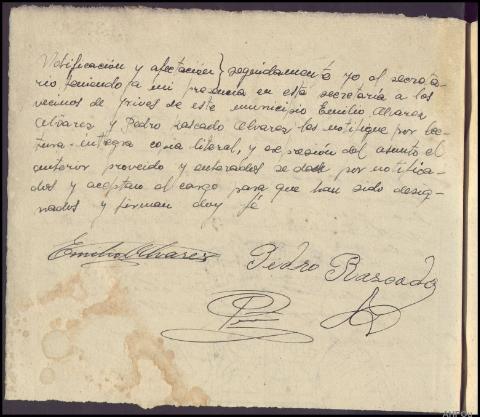 Notificación y afectación} seguidamente yo el secreta-
rio teniendo a mi presencia en esta secretaria a los
vecinos de Trives de este municipio Emilio Alvarez
Alvarez y Pedro Rascado Alvarez les notifique por lec-
tura integra copia literal, y expresión del asunto el
anterior proveido y enterados se dan por notifica-
dos y aceptan el cargo para que han sido desig-
nados y firman doy fé
Emilio Alvarez
Pedro Rascado